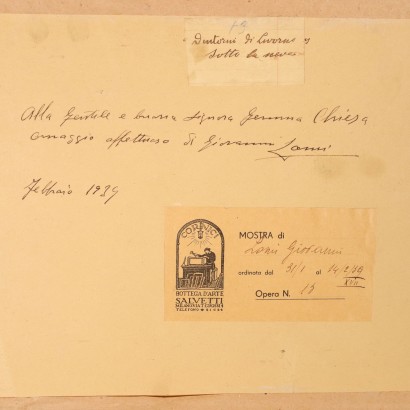 Dintorni di Livorno
sotto la neve
Alla Gentile e buona signora Gemma Chiesa
omaggio affettuoso di Giovanni Lomi
Febbraio 1939
CORNICI
BOTTEGA D'ARTE
SALVETTI
TELEFONO
MOSTRA di
Lomi Giovanni
ordinata dal 31/1 al 14/2/39
XVII
Opera N. 15